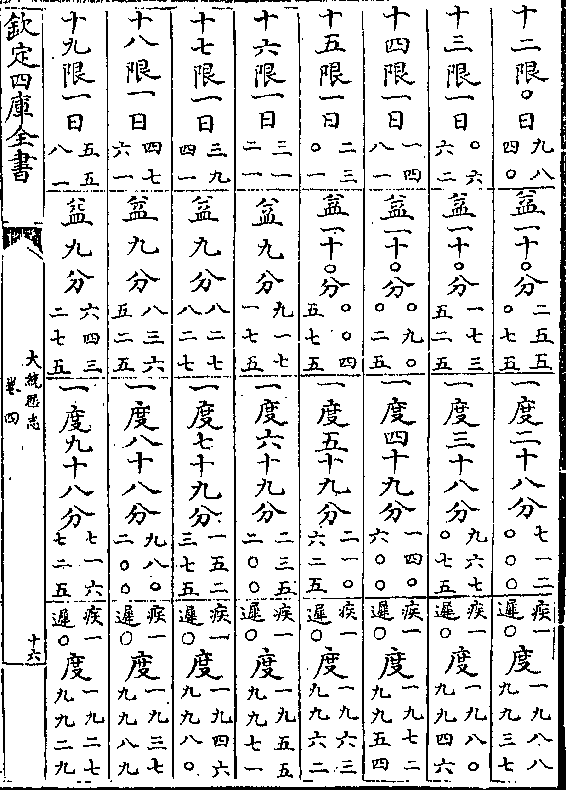 十二限〇日九八四〇益一十〇分二五五〇七五一度二十八分七一二〇〇〇疾一遲〇度一九八八九九三七
十三限一日〇六六二益一十〇分一七三五二五一度三十八分九六七〇七五疾一遲〇度一九八〇九九四六
十四限一日一四八一益一十〇分〇九〇〇二五一度四十九分一四〇六〇〇疾一遲〇度一九七二九九五四
十五限一日二三〇一益一十〇分〇〇四五七五一度五十九分二一〇六二五疾一遲〇度一九六三九九六二
十六限一日三一二一益九分九一七一七五一度六十九分二三五二〇〇疾一遲〇度一九五五九九七一
十七限一日三九四一益九分八二七八二七一度七十九分一五二三七五疾一遲〇度一九四六九九八〇
十八限一日四七六一益九分八三六五二五一度八十八分九八〇二〇〇疾一遲〇度一九三七九九八九
十九限一日五五八一益九分六四三二七五一度九十八分七一六七二五疾一遲〇度一九二七九九二九
欽定四庫全書
大統歴志
卷四
十六